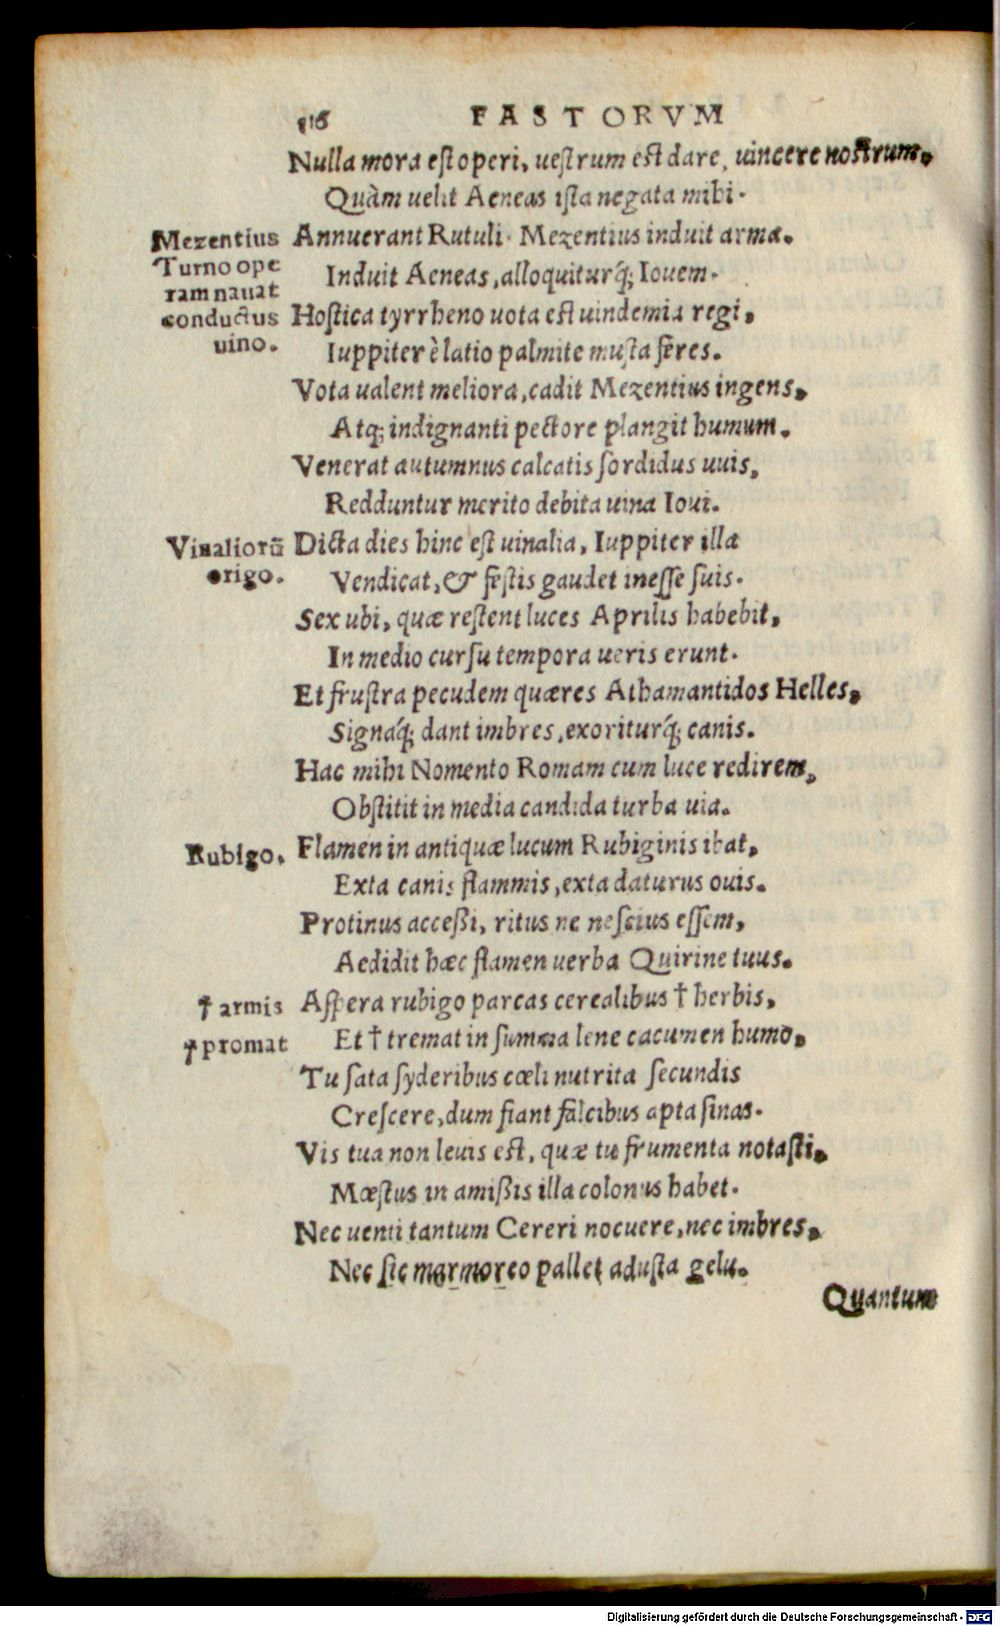 116 FASTORVM
Nulla mora est operi, uestrum est dare, uincere nostrum,
Quàm uelit Aeneas ista negata mihi.
Mezentius Annuerant Rutuli. Mezentius induit arma.
Turno ope
Induit Aeneas, alloquiturq́; Iouem.
ram nauat
conductus Hostica tyrrheno uota est uindemia regi,
uino.
Iuppiter è latio palmite musta feres.
Vota ualent meliora, cadit Mezentius ingens,
Atq; indignanti pectore plangit humum.
Venerat autumnus calcatis sordidus uuis,
Redduntur merito debita uina Ioui.
Vinaliorū Dicta dies hinc est uinalia, Iuppiter illa
origo.
Vendicat, & festis gaudet inesse suis.
Sex ubi, quæ restent luces Aprilis habebit,
In medio cursu tempora ueris erunt.
Et frustra pecudem quæres Athamantidos Helles,
Signaq́; dant imbres, exoriturq́; canis.
Hac mihi Nomento Romam cum luce redirem,
Obstitit in media candida turba uia.
Rubigo. Flamen in antiquæ lucum Rubiginis ibat,
Exta canis flammis, exta daturus ouis.
Protinus accessi, ritus ne nescius essem,
Aedidit hæc flamen uerba Quirine tuus.
† armis Aspera rubigo parcas cerealibus † herbis,
† promat Et † tremat in summa lene cacumen humo,
Tu sata syderibus cœli nutrita secundis
Crescere, dum fiant falcibus apta sinas.
Vis tua non leuis est, quæ tu frumenta notasti,
Mœstus in amissis illa colonus habet.
Nec uenti tantum Cereri nocuere, nec imbres,
Nec sic marmoreo pallet adusta gelu.
Quantum
Digitalisierung gefördert durch die Deutsche Forschungsgemeinschaft - DFG